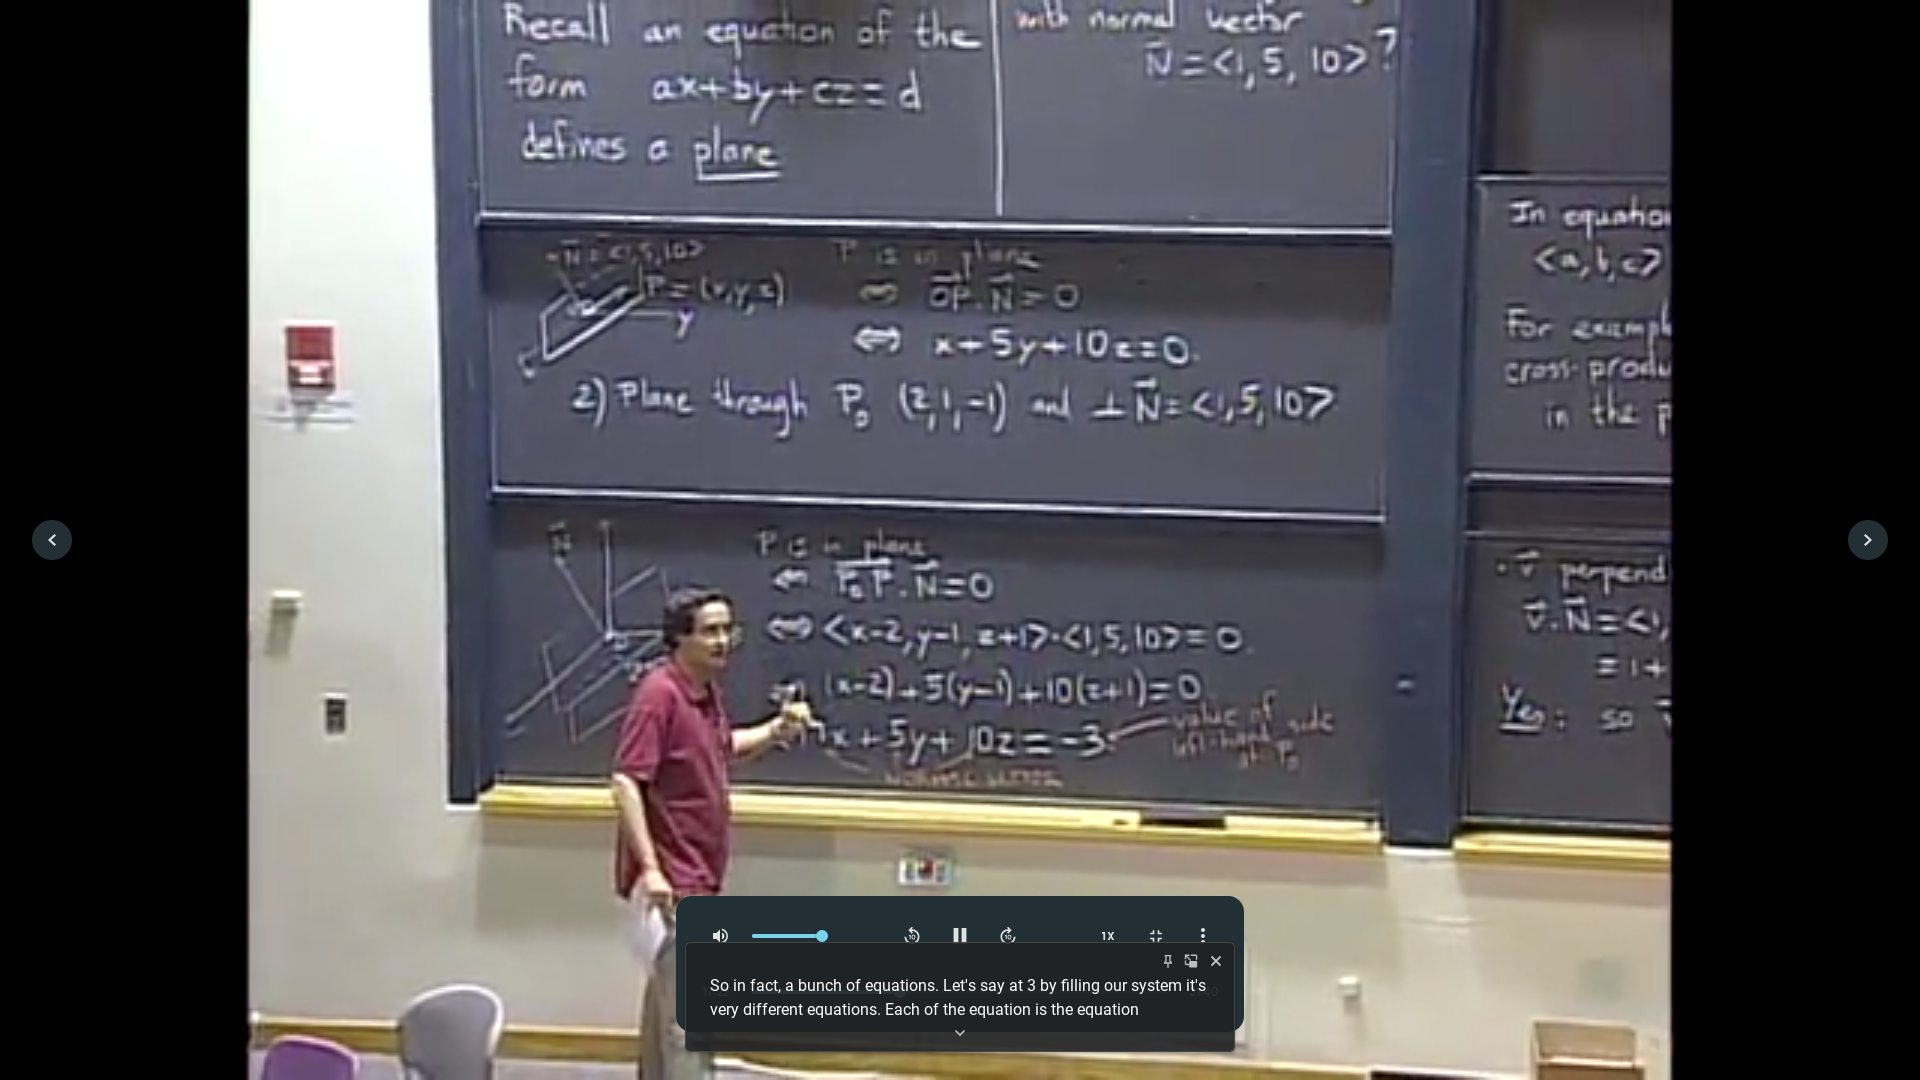 Recall an equation of the
form ax+by+cz=d
defines a plane
with normal vector
N⃗ = <1, 5, 10> ?
N⃗ = <1,5,10>
P = (x,y,z)
y
P is in plane
⇔ O⃗P⃗ . N⃗ = 0
⇔ x+5y+10z=0.
2) Plane through P₀ (2,1,-1) and ⊥ N⃗ = <1,5,10>
N⃗
P is in plane
⇔ P₀P⃗ . N⃗ = 0
⇔ <x-2, y-1, z+1> · <1,5,10> = 0.
⇔ (x-2)+5(y-1)+10(z+1)=0
1x+5y+10z=-3
value of
left-hand side
at P₀
normal vector
In
<a,b,c>
For
in the
v⃗
v⃗ . N⃗ = <1,
= 1+
Yes: so
1X
So in fact, a bunch of equations. Let's say at 3 by filling our system it's
very different equations. Each of the equation is the equation